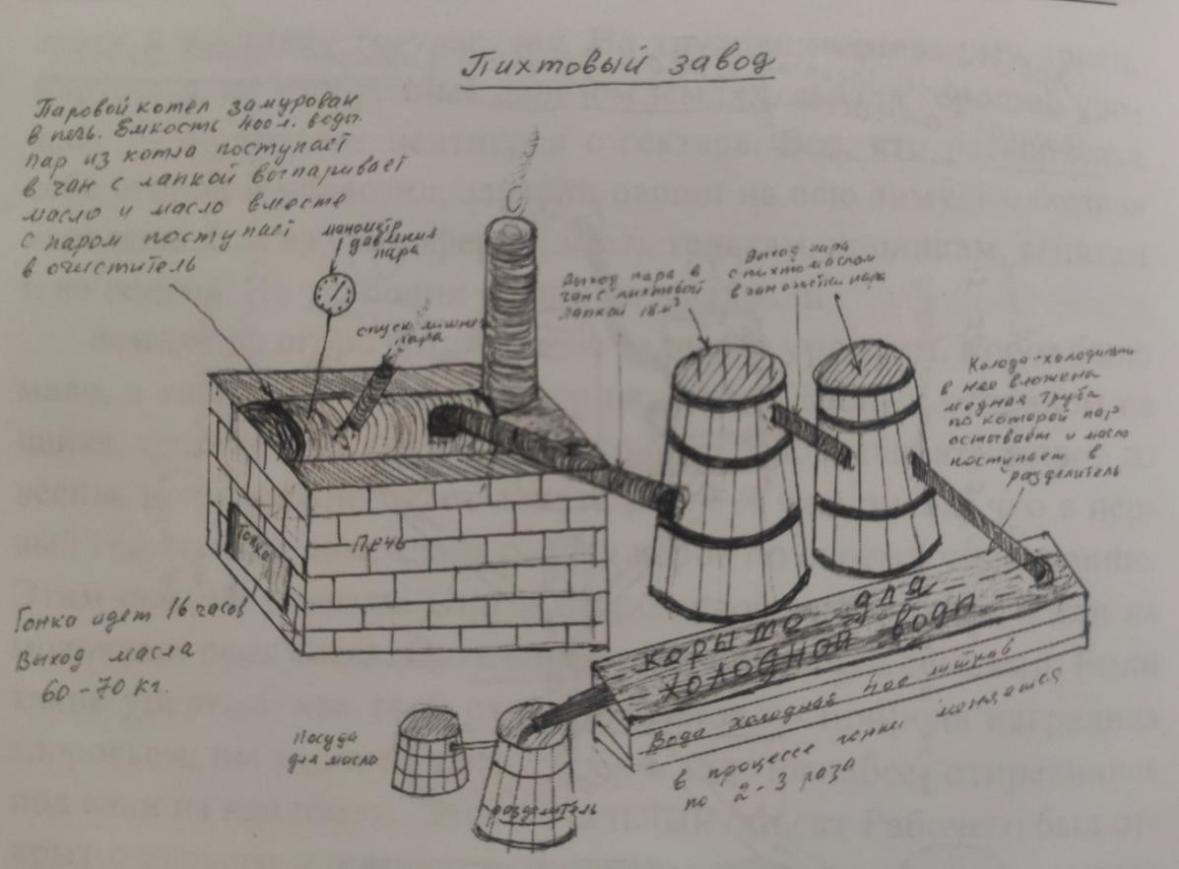 Пихтовый завод
Паровой котел замурован
в печь. Емкость 400 л. воды.
пар из котла поступает
в чан с лапкой воспаривает
масло и масло вместе
с паром поступает
в очиститель
манометр
давления
пара
спуск лишнего
пара
Выход пара в
чан с пихтовой
лапкой 18 м³
Выход пара
с пихтомаслом
в чан очистки пара
Колода-холодильник
в нее вложена
медная труба
по которой пар
остывает и масло
поступает в
разделитель
Топка
Печь
Гонка идет 16 часов
Выход масла
60-70 кг.
корыто для
холодной воды
Вода холодная 400 литров
в процессе гонки меняется
по 2-3 раза
Посуда
для масла
разделитель